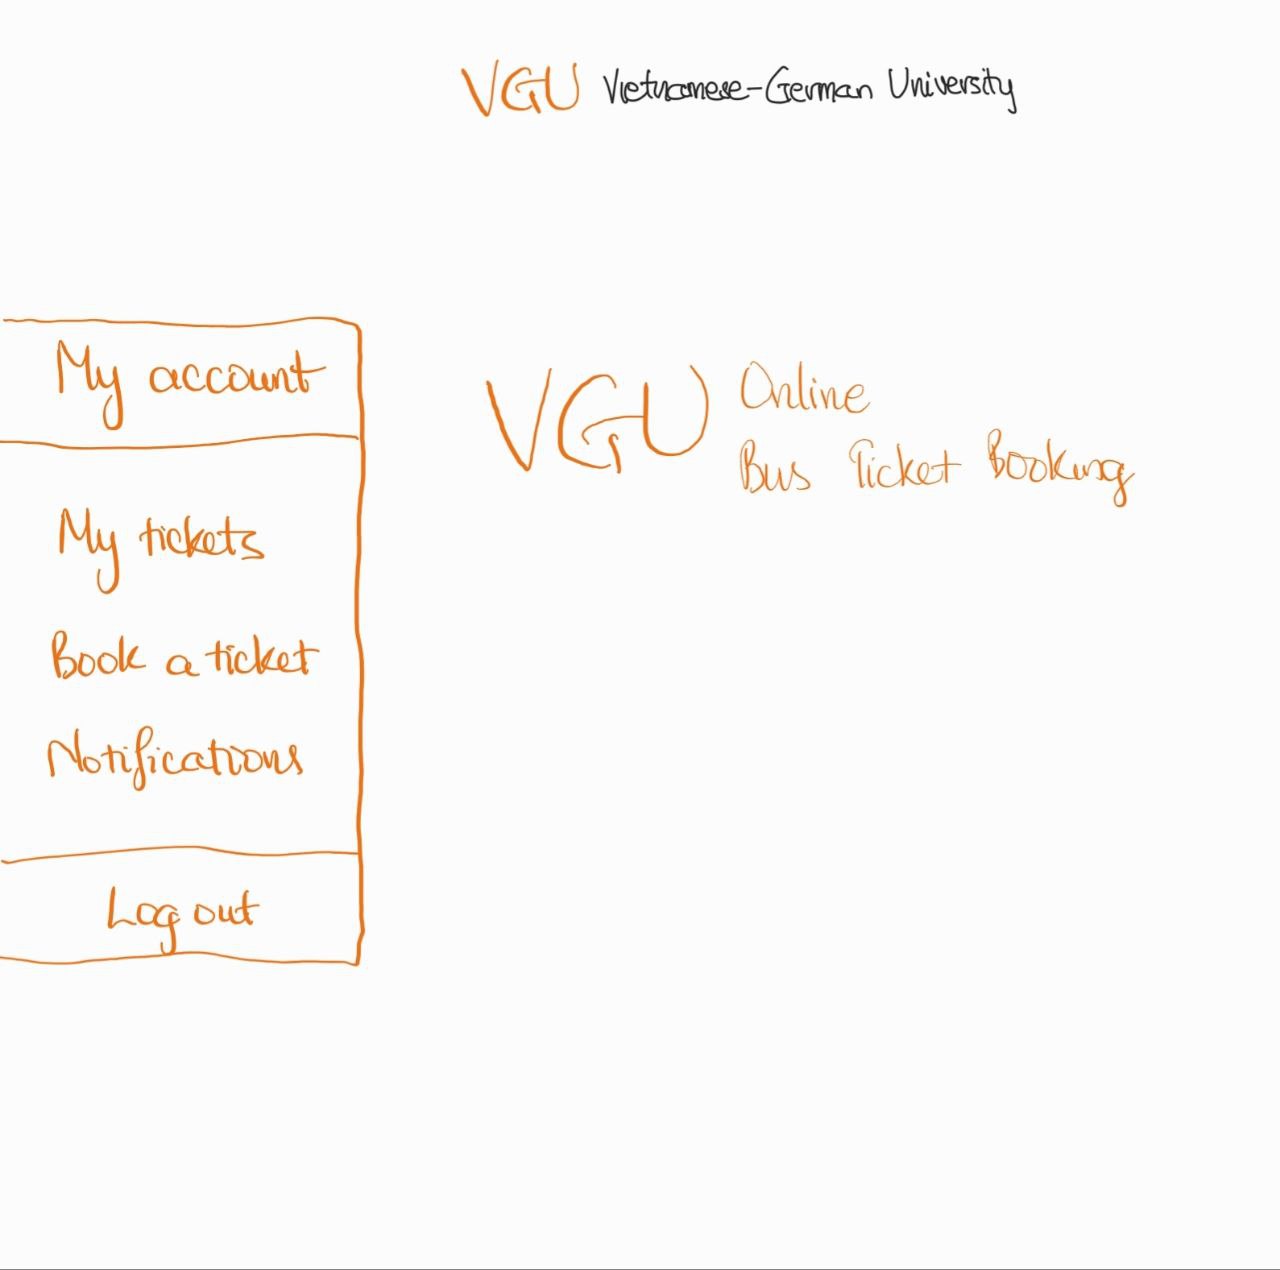 VGU Vietnamese-German University
My account
My tickets
Book a ticket
Notifications
Log out
VGU Online
Bus Ticket Booking